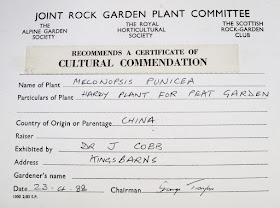 JOINT ROCK GARDEN PLANT COMMITTEE
THE ALPINE GARDEN SOCIETY
THE ROYAL HORTICULTURAL SOCIETY
THE SCOTTISH ROCK-GARDEN CLUB
RECOMMENDS A CERTIFICATE OF
CULTURAL COMMENDATION
Name of Plant MECONOPSIS PUNICEA
Particulars of Plant HARDY PLANT FOR PEAT GARDEN
Country of Origin or Parentage CHINA
Raiser
Exhibited by DR J COBB
Address KINGSBARNS
Gardener's name
Date 23-4-88 Chairman George